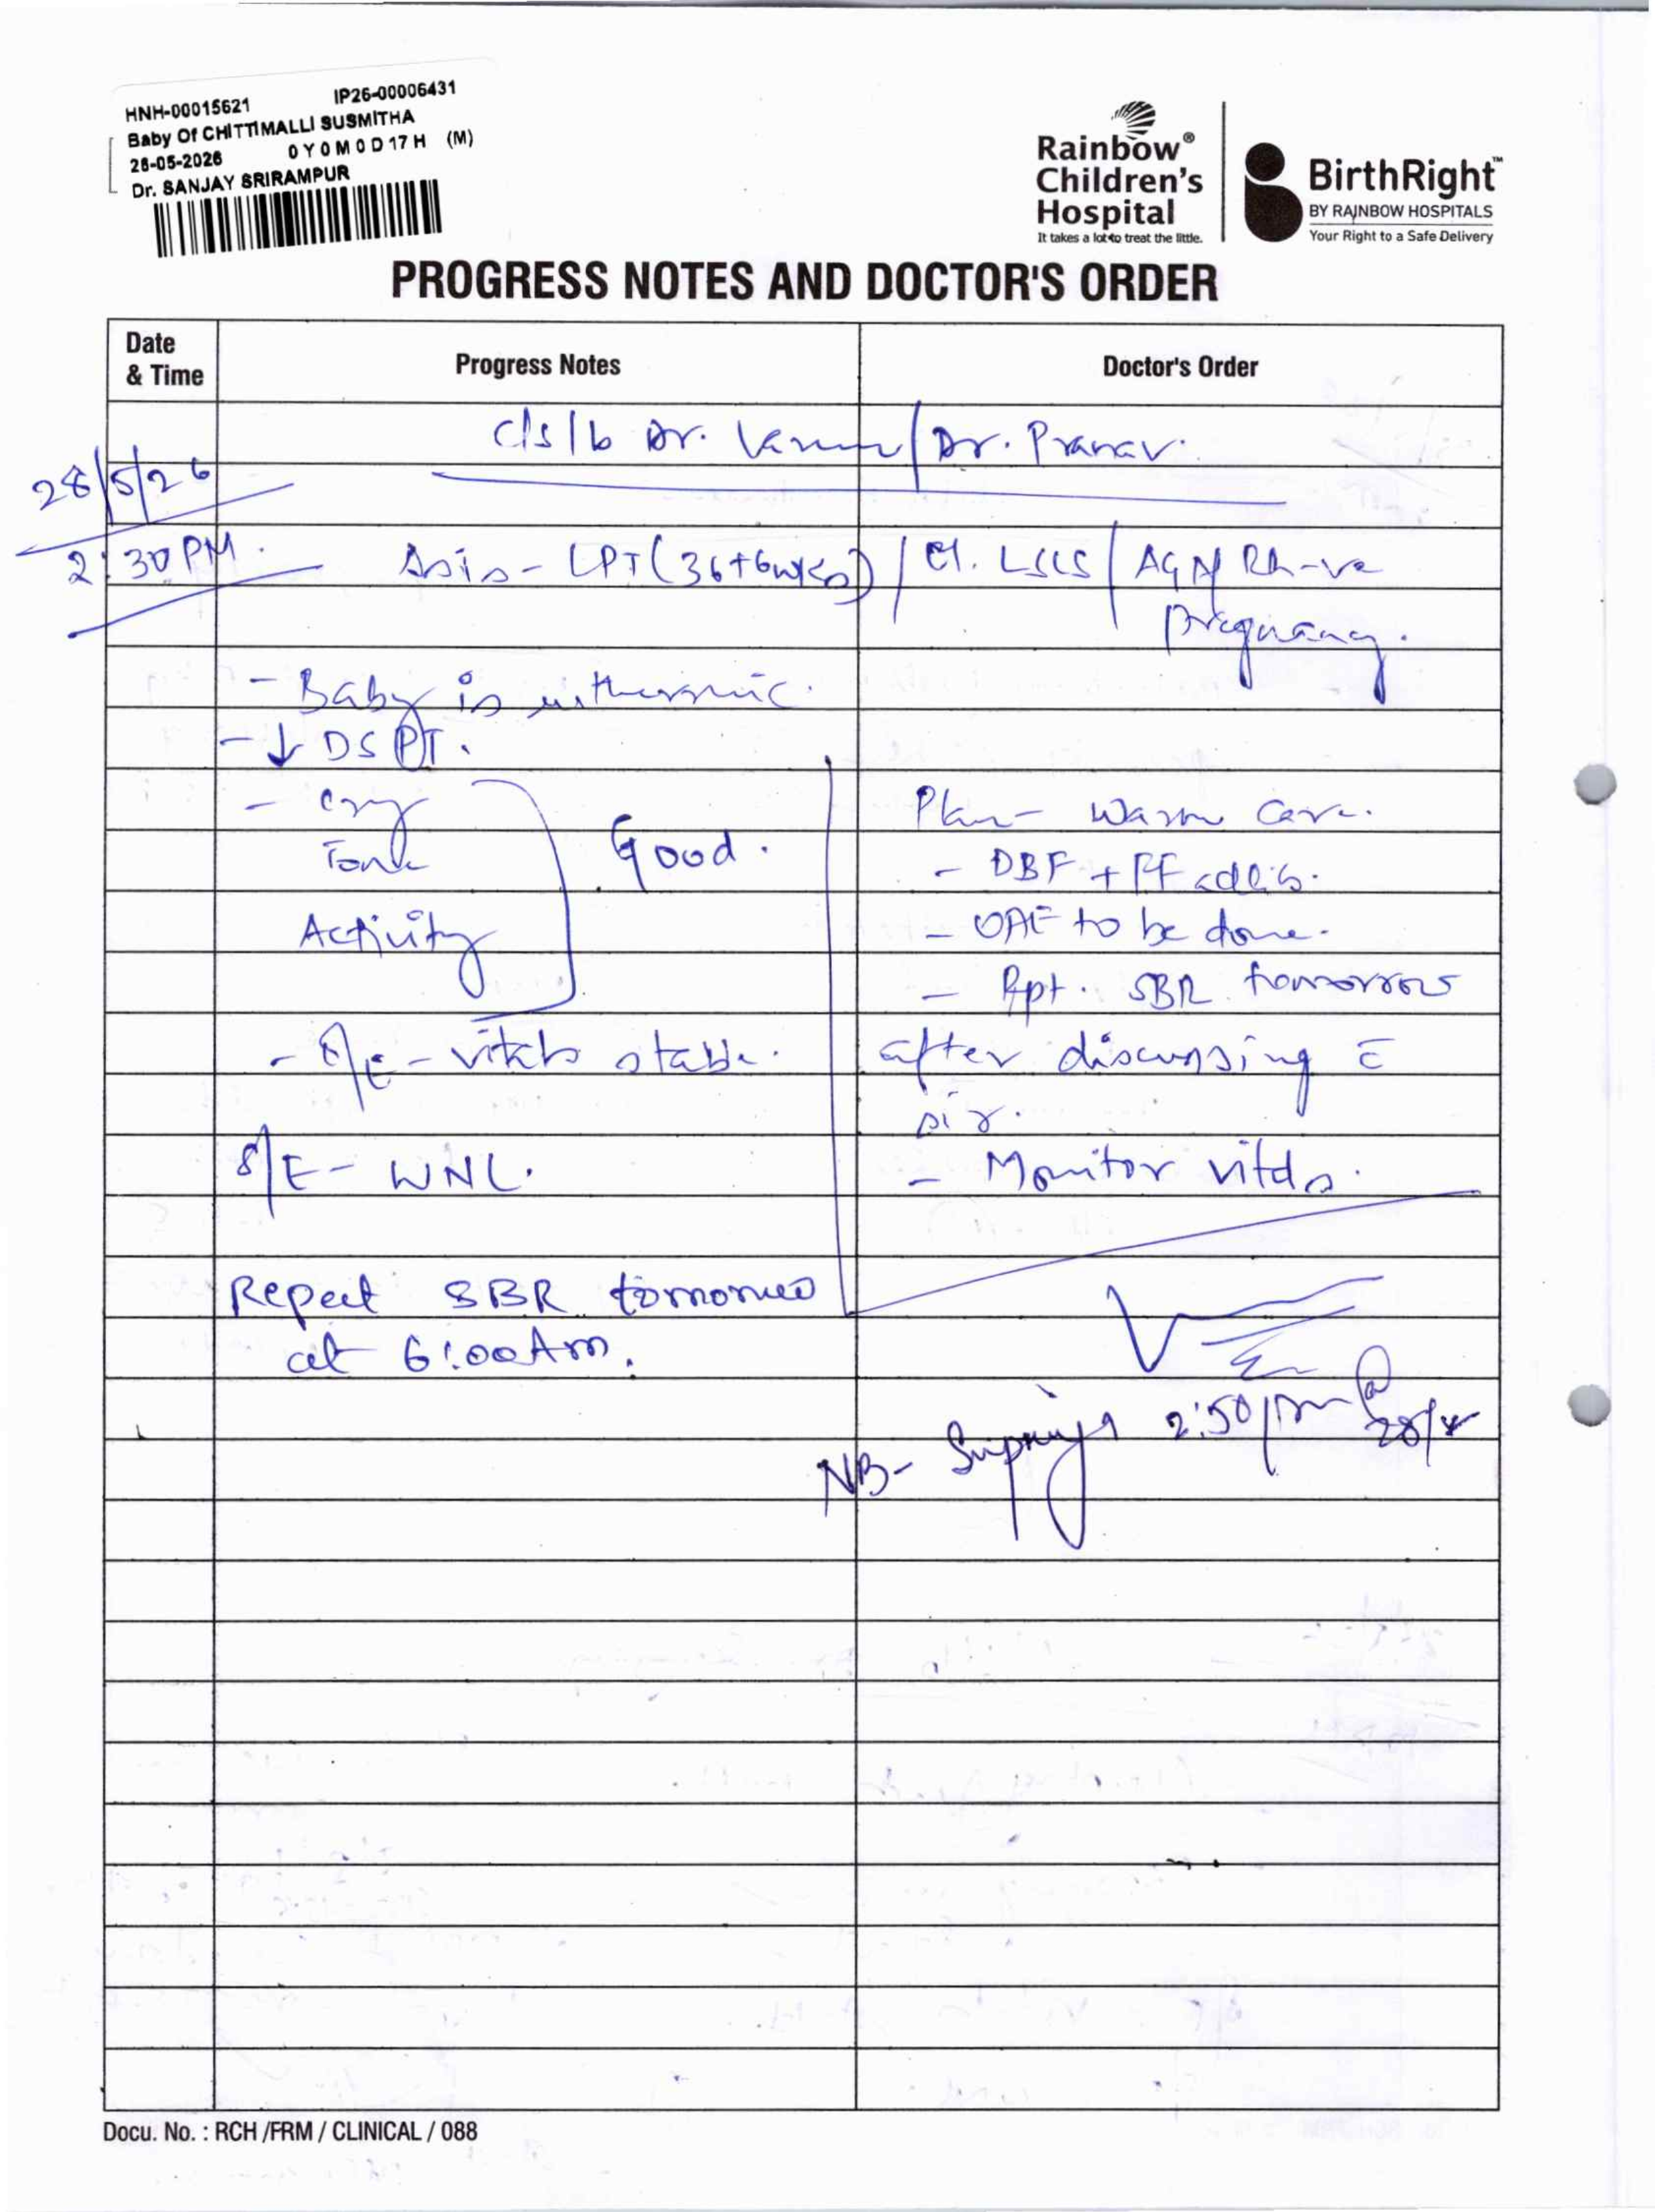 HNH-00015621 IP26-00006431
Baby Of CHITTIMALLI SUSMITHA
26-05-2026 0 Y 0 M 0 D 17 H (M)
Dr. SANJAY SRIRAMPUR
Rainbow®
Children's
Hospital
It takes a lot to treat the little.
BirthRight™
BY RAINBOW HOSPITALS
Your Right to a Safe Delivery
PROGRESS NOTES AND DOCTOR'S ORDER
Date
& Time
Progress Notes
Doctor's Order
c/s/b Dr. / Dr. Pranav.
28/5/26
2:30 PM.
LPT (36+6wks) / El. LSCS / AGA/ Rh-ve
pregnancy.
- Baby is euthermic.
- ↓ DSPT.
- Cry
Tone
Activity
Good.
- O/E - vitals stable.
S/E - WNL.
Plan - Warm Care.
- DBF + FF adlib.
- OAE to be done.
- Rpt. SBR tomorrow
after discussing c̄
sir.
- Monitor vitals.
Repeat SBR tomorrow
at 6:00 Am.
NB- 2:50 pm @
28/5
Docu. No. : RCH /FRM / CLINICAL / 088